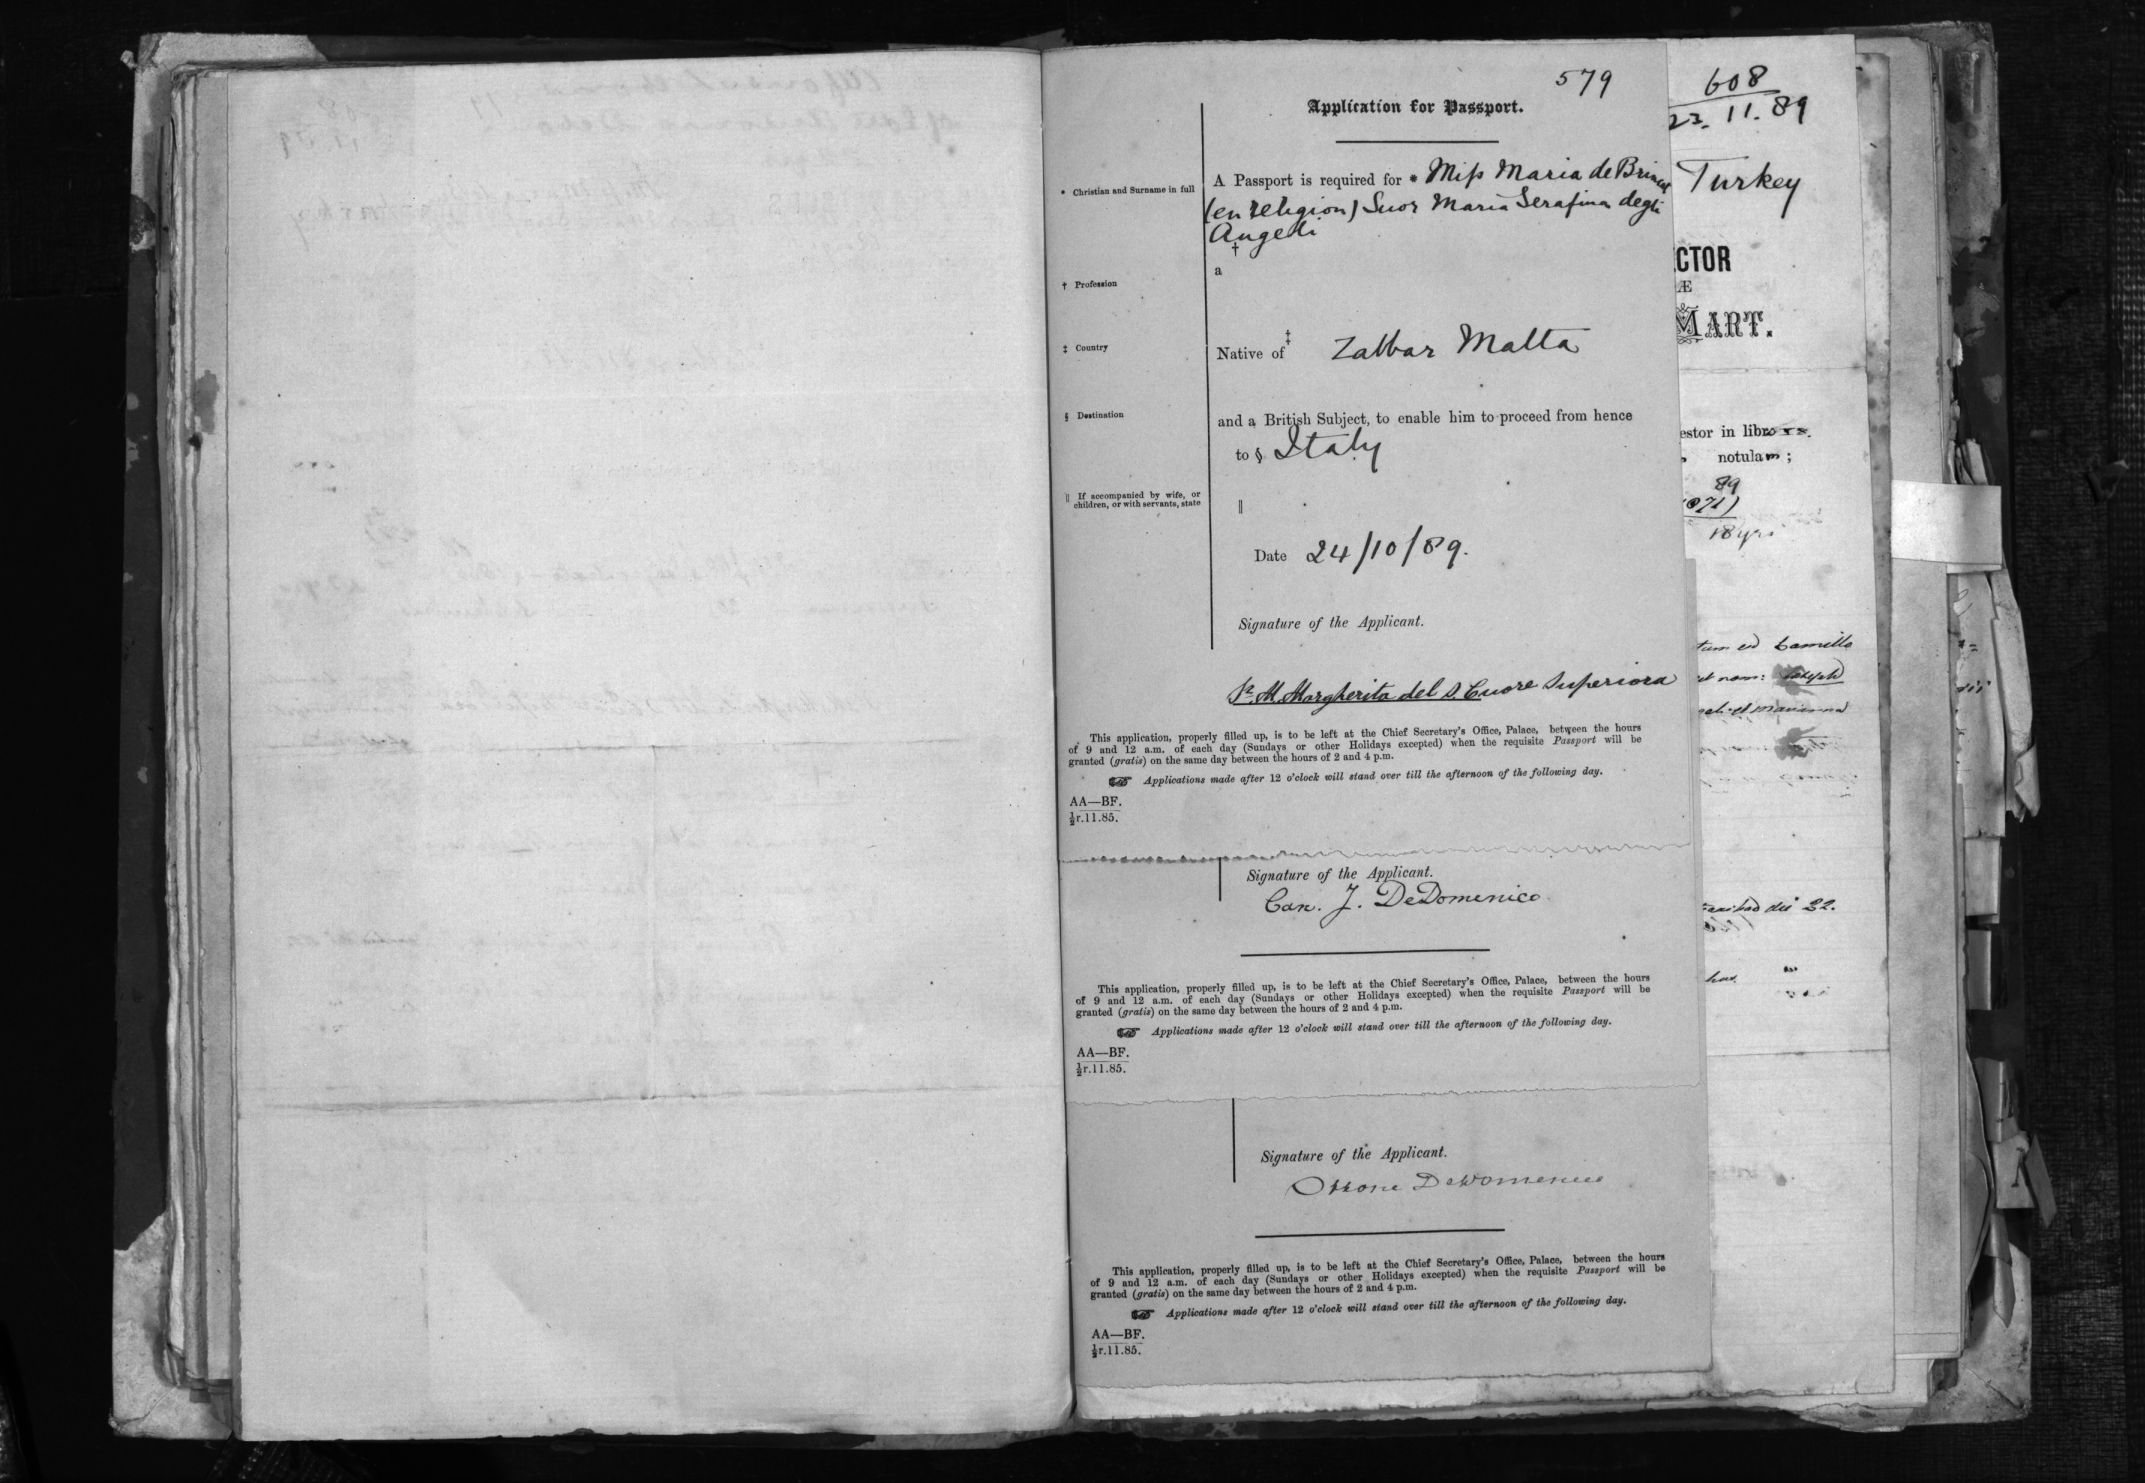 579
Application for Passport.
* Christian and Surname in full
A Passport is required for * Miss Maria de Brincat
(en religion) Suor Maria Serafina degli
Angeli
†
a
† Profession
‡ Country
Native of ‡ Zabbar Malta
§ Destination
and a British Subject, to enable him to proceed from hence
to § Italy
|| If accompanied by wife, or
children, or with servants, state
||
Date 24/10/89.
Signature of the Applicant.
Sr. M. Margherita del S. Cuore Superiora
This application, properly filled up, is to be left at the Chief Secretary's Office, Palace, between the hours
of 9 and 12 a.m. of each day (Sundays or other Holidays excepted) when the requisite Passport will be
granted (gratis) on the same day between the hours of 2 and 4 p.m.
☞ Applications made after 12 o'clock will stand over till the afternoon of the following day.
AA—BF.
½r.11.85.
Signature of the Applicant.
Can. J. DeDomenico
This application, properly filled up, is to be left at the Chief Secretary's Office, Palace, between the hours
of 9 and 12 a.m. of each day (Sundays or other Holidays excepted) when the requisite Passport will be
granted (gratis) on the same day between the hours of 2 and 4 p.m.
☞ Applications made after 12 o'clock will stand over till the afternoon of the following day.
AA—BF.
½r.11.85.
Signature of the Applicant.
This application, properly filled up, is to be left at the Chief Secretary's Office, Palace, between the hours
of 9 and 12 a.m. of each day (Sundays or other Holidays excepted) when the requisite Passport will be
granted (gratis) on the same day between the hours of 2 and 4 p.m.
☞ Applications made after 12 o'clock will stand over till the afternoon of the following day.
AA—BF.
½r.11.85.
608
11. 89
Turkey
CTOR
Æ
MART.
estor in libro
notulam ;
89
18 yrs
Camillo
nom:
et
die 22.